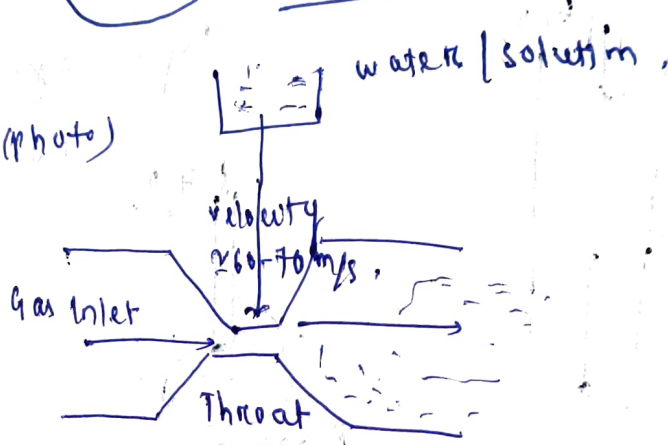 water / solution.
(photo)
velocity
≈60-70 m/s.
Gas Inlet
Throat